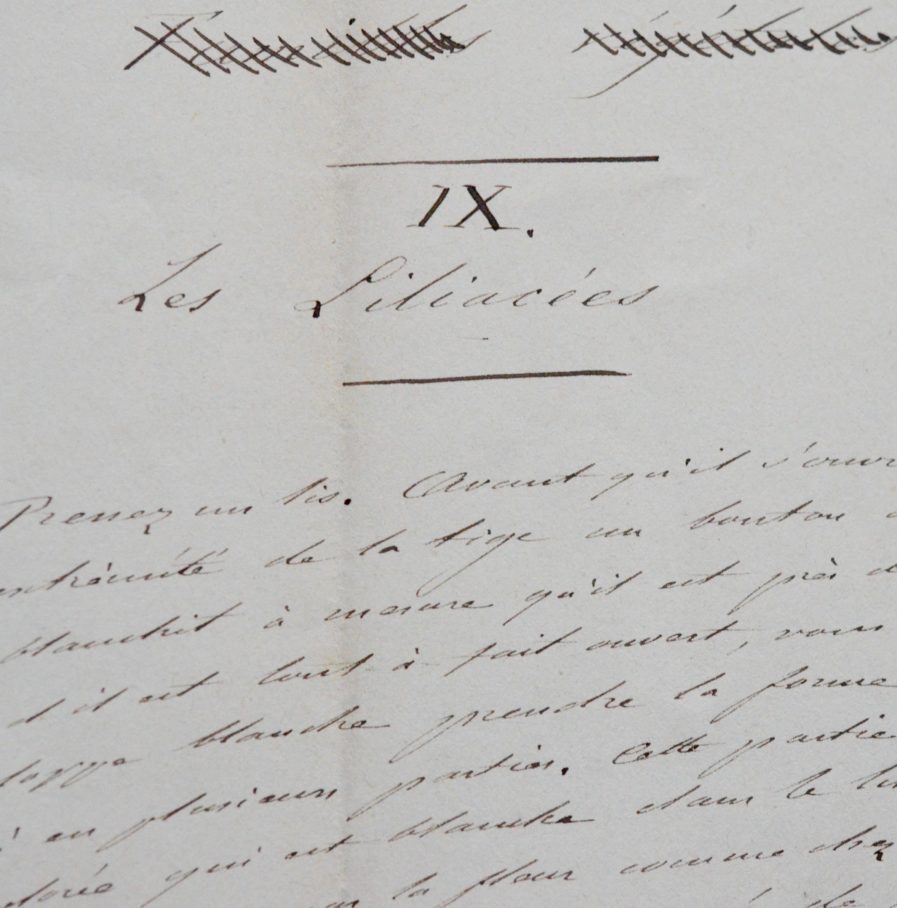 IX.
Les Liliacées
Prenez un lis. Avant qu'il s'ouvr
extrémité de la tige un bouton
blanchit à mesure qu'il est près d
d il est tout à fait ouvert, vous
loppe blanche prendre la forme
en plusieurs parties. Cette partie
lorée qui est blanche dans le lis
la fleur comme chez
de